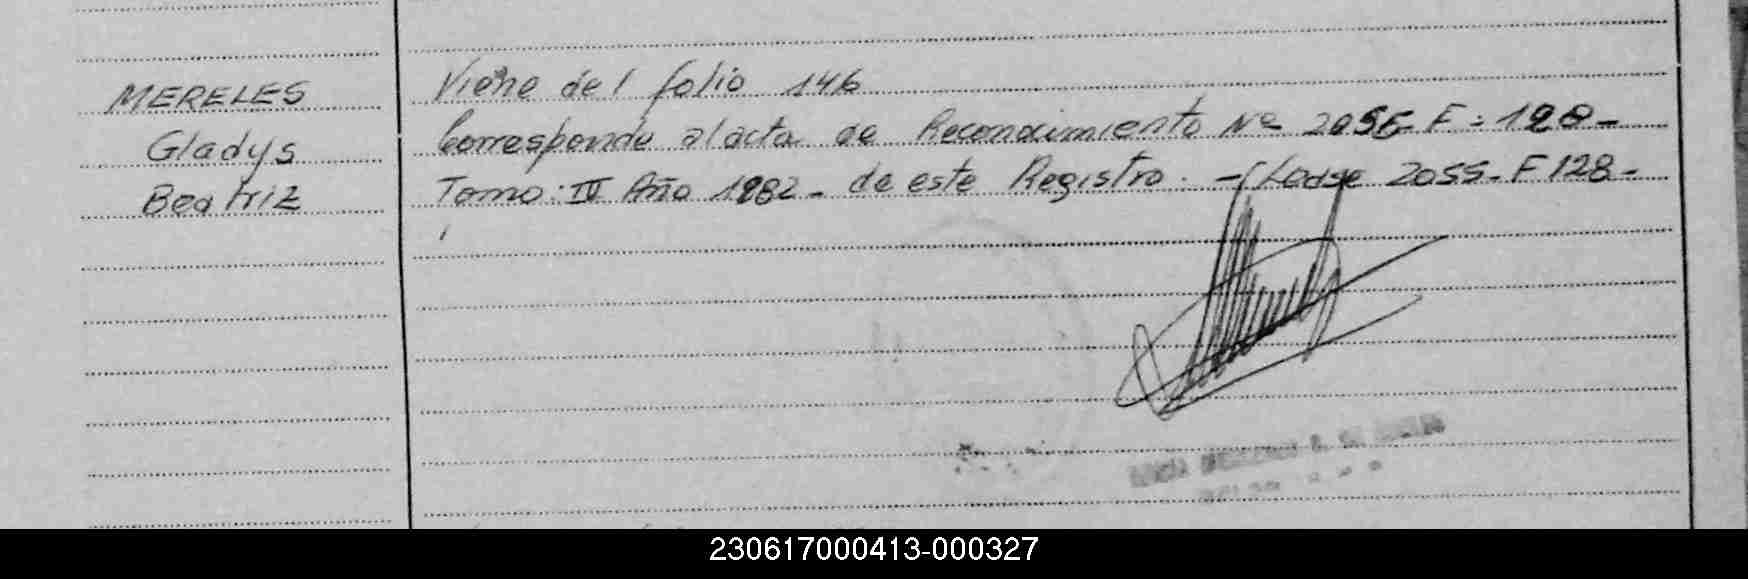 MERELES
Gladys
Beatriz
Viene del folio 146
Corresponde al acta de Reconocimiento Nº 2056- F: 128-
Tomo: IV Año 1982- de este Registro. - Lease 2055- F 128-
230617000413-000327